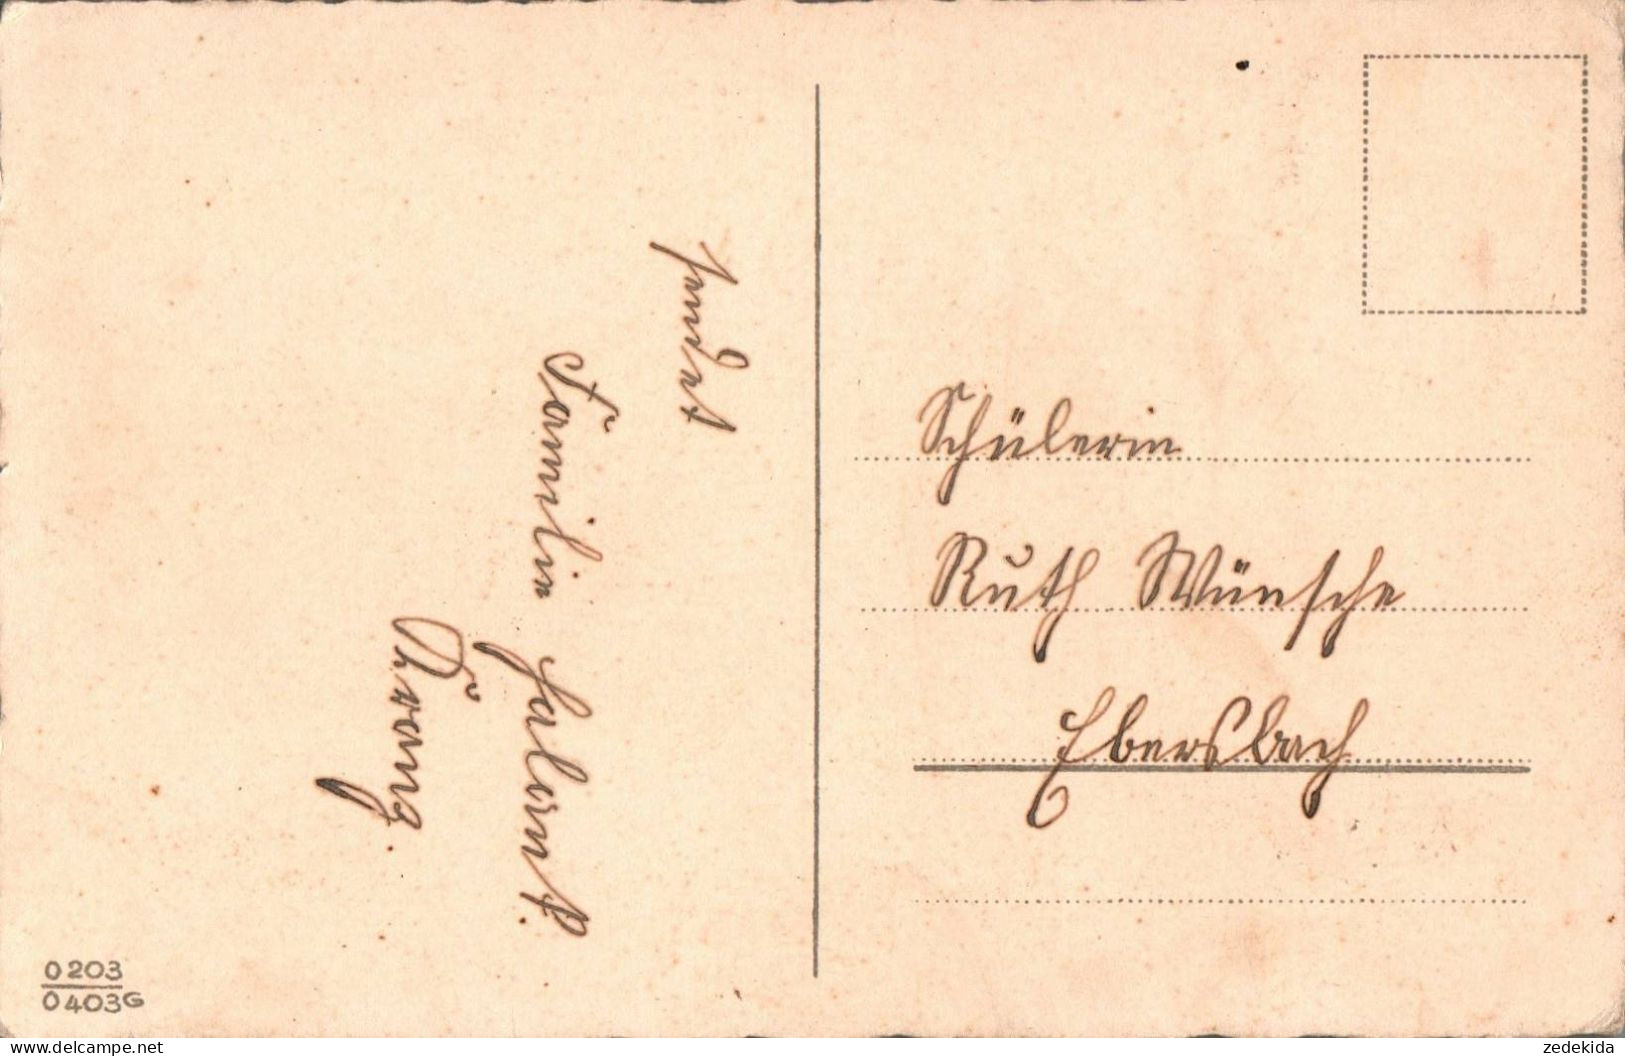 sendet
Familie
Schülerin
Ruth Wünsche
Ebersbach
0203
0403G
www.delcampe.net
zedekida